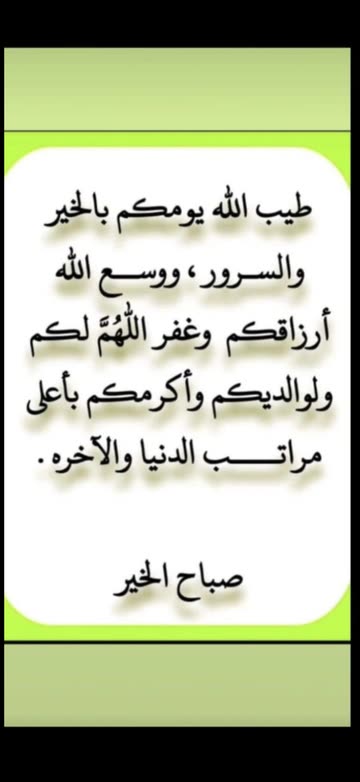 طيب الله يومكم بالخير
والسـرور ، ووسـع الله
أرزاقكم وغفر اللهُمَّ لكم
ولوالديكم وأكرمكم بأعلى
مراتـب الدنيا والآخره .
صباح الخير